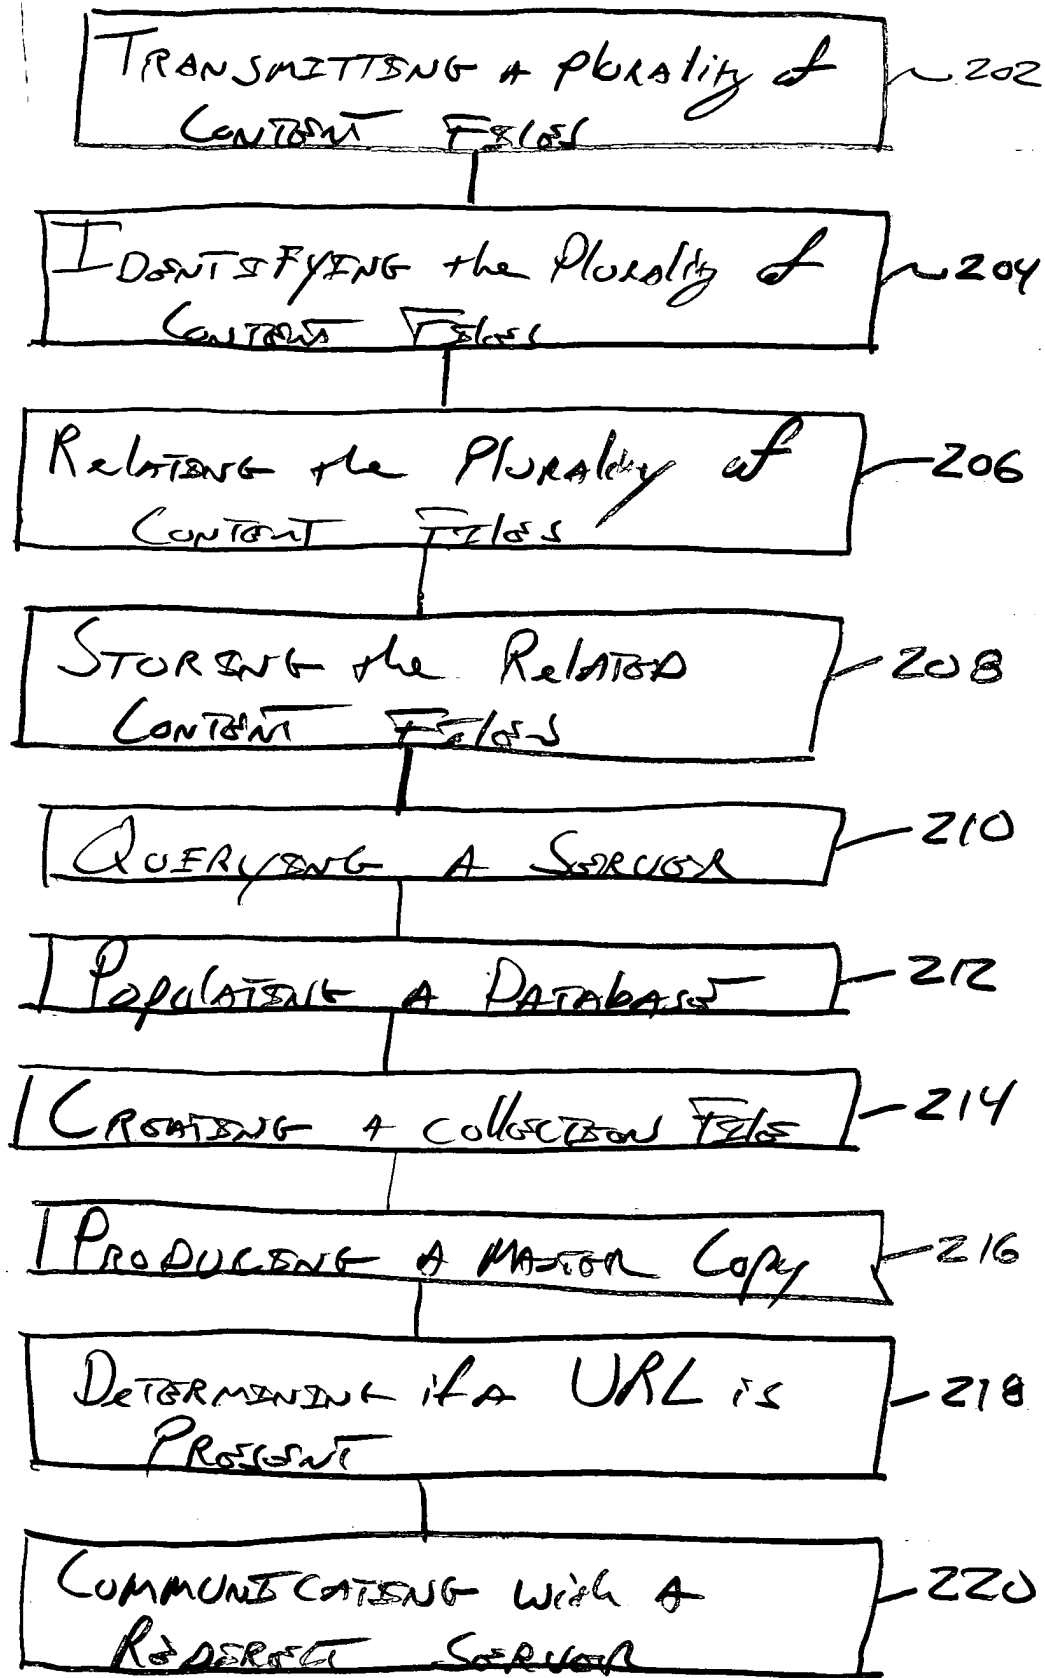 TRANSMITTING A plurality of 202
CONTENT FILES
IDENTIFYING the Plurality of 204
CONTENT FILES
Relating the Plurality of 206
CONTENT FILES
STORING the Related 208
CONTENT FILES
QUERYING A SERVER 210
Populating A Database 212
CREATING A collection File 214
PRODUCING A MASTER Copy 216
DETERMINING if A URL is 218
PRESENT
COMMUNICATING with A 220
REDIRECT SERVER